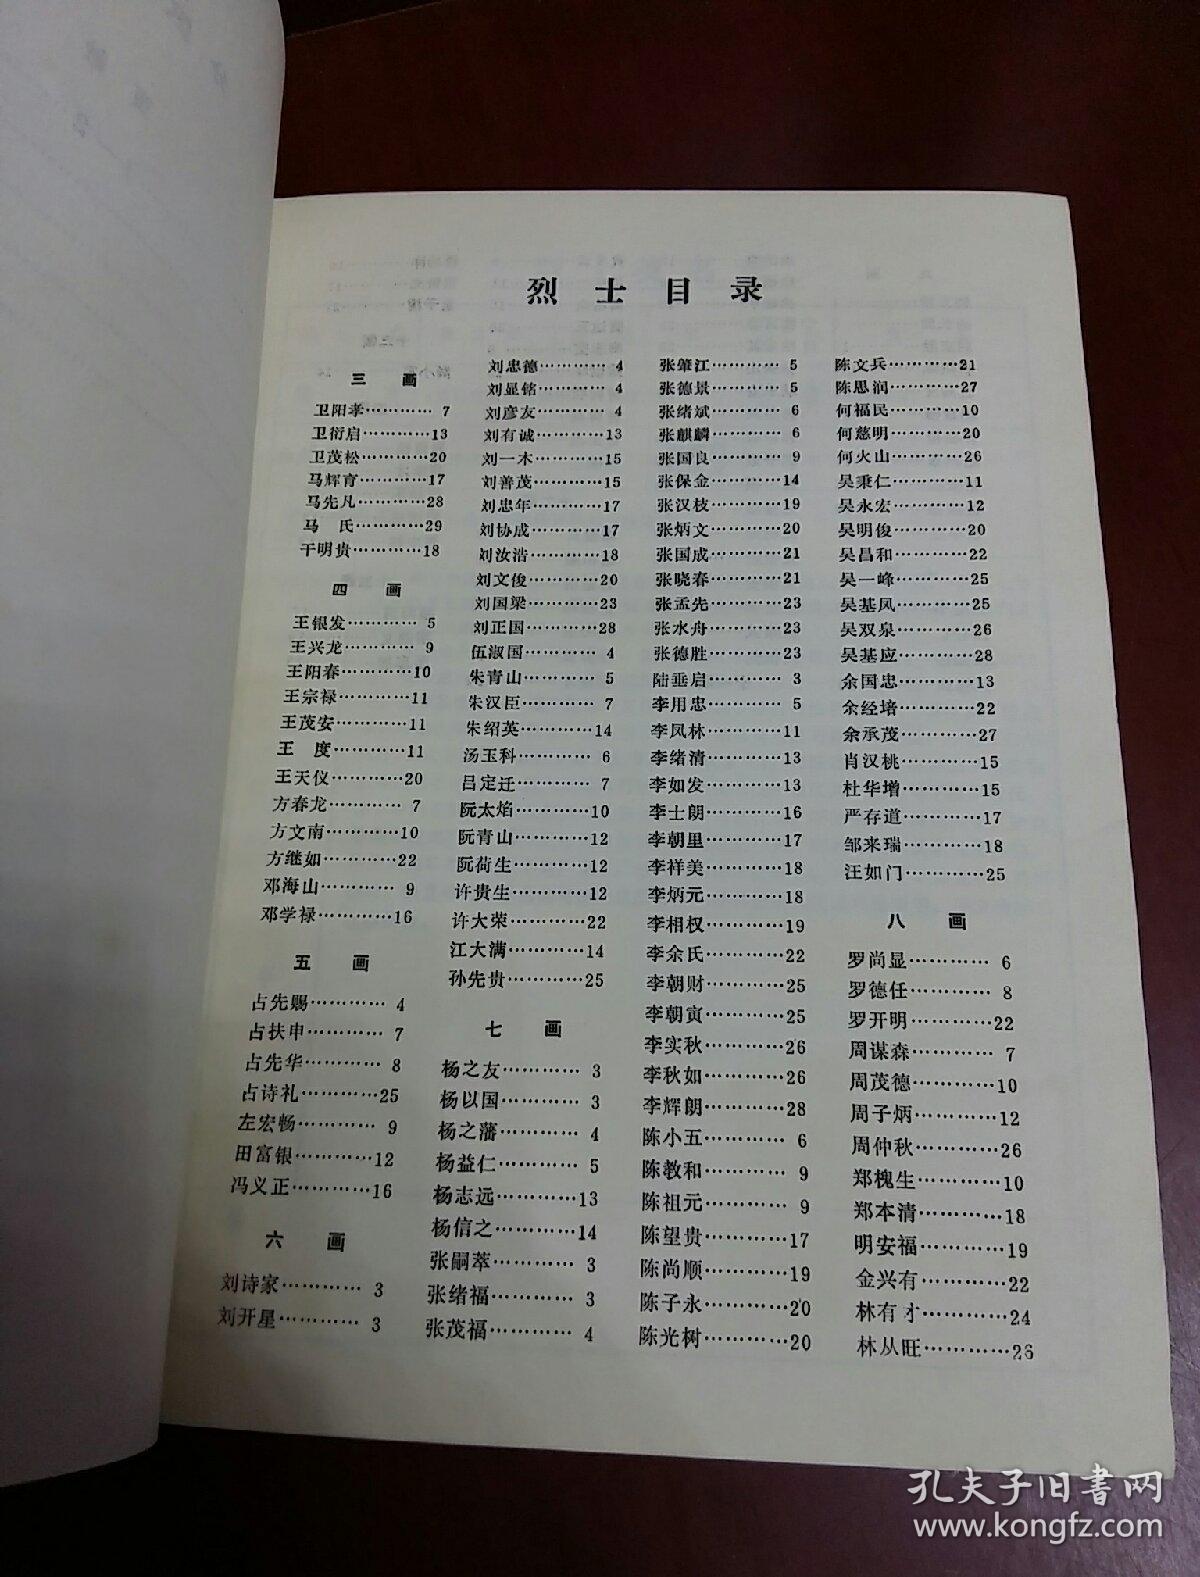 烈士目录
三画
卫阳孝…………7
卫衍启…………13
卫茂松…………20
马辉育…………17
马先凡…………28
马 氏…………29
干明贵…………18
四画
王银发…………5
王兴龙…………9
王阳春…………10
王宗禄…………11
王茂安…………11
王 度…………11
王天仪…………20
方春龙…………7
方文南…………10
方继如…………22
邓海山…………9
邓学禄…………16
五画
占先赐…………4
占扶申…………7
占先华…………8
占诗礼…………25
左宏畅…………9
田富银…………12
冯义正…………16
六画
刘诗家…………3
刘开星…………3
刘忠德…………4
刘显铭…………4
刘彦友…………4
刘有诚…………13
刘一木…………15
刘善茂…………15
刘忠年…………17
刘协成…………17
刘汝浩…………18
刘文俊…………20
刘国梁…………23
刘正国…………28
伍淑国…………4
朱青山…………5
朱汉臣…………7
朱绍英…………14
汤玉科…………6
吕定迁…………7
阮太焰…………10
阮青山…………12
阮荷生…………12
许贵生…………12
许大荣…………22
江大满…………14
孙先贵…………25
七画
杨之友…………3
杨以国…………3
杨之藩…………4
杨益仁…………5
杨志远…………13
杨信之…………14
张嗣萃…………3
张绪福…………3
张茂福…………4
张肇江…………5
张德景…………5
张绪斌…………6
张麒麟…………6
张国良…………9
张保金…………14
张汉枝…………19
张炳文…………20
张国成…………21
张晓春…………21
张孟先…………23
张水舟…………23
张德胜…………23
陆垂启…………3
李用忠…………5
李凤林…………11
李绪清…………13
李如发…………13
李士朗…………16
李朝里…………17
李祥美…………18
李炳元…………18
李相权…………19
李余氏…………22
李朝财…………25
李朝寅…………25
李实秋…………26
李秋如…………26
李辉朗…………28
陈小五…………6
陈教和…………9
陈祖元…………9
陈望贵…………17
陈尚顺…………19
陈子永…………20
陈光树…………20
陈文兵…………21
陈思润…………27
何福民…………10
何慈明…………20
何火山…………26
吴秉仁…………11
吴永宏…………12
吴明俊…………20
吴昌和…………22
吴一峰…………25
吴基凤…………25
吴双泉…………26
吴基应…………28
余国忠…………13
余经培…………22
余承茂…………27
肖汉桃…………15
杜华增…………15
严存道…………17
邹来瑞…………18
汪如门…………25
八画
罗尚显…………6
罗德任…………8
罗开明…………22
周谋森…………7
周茂德…………10
周子炳…………12
周仲秋…………26
郑槐生…………10
郑本清…………18
明安福…………19
金兴有…………22
林有才…………24
林从旺…………26
孔夫子旧书网
www.kongfz.com